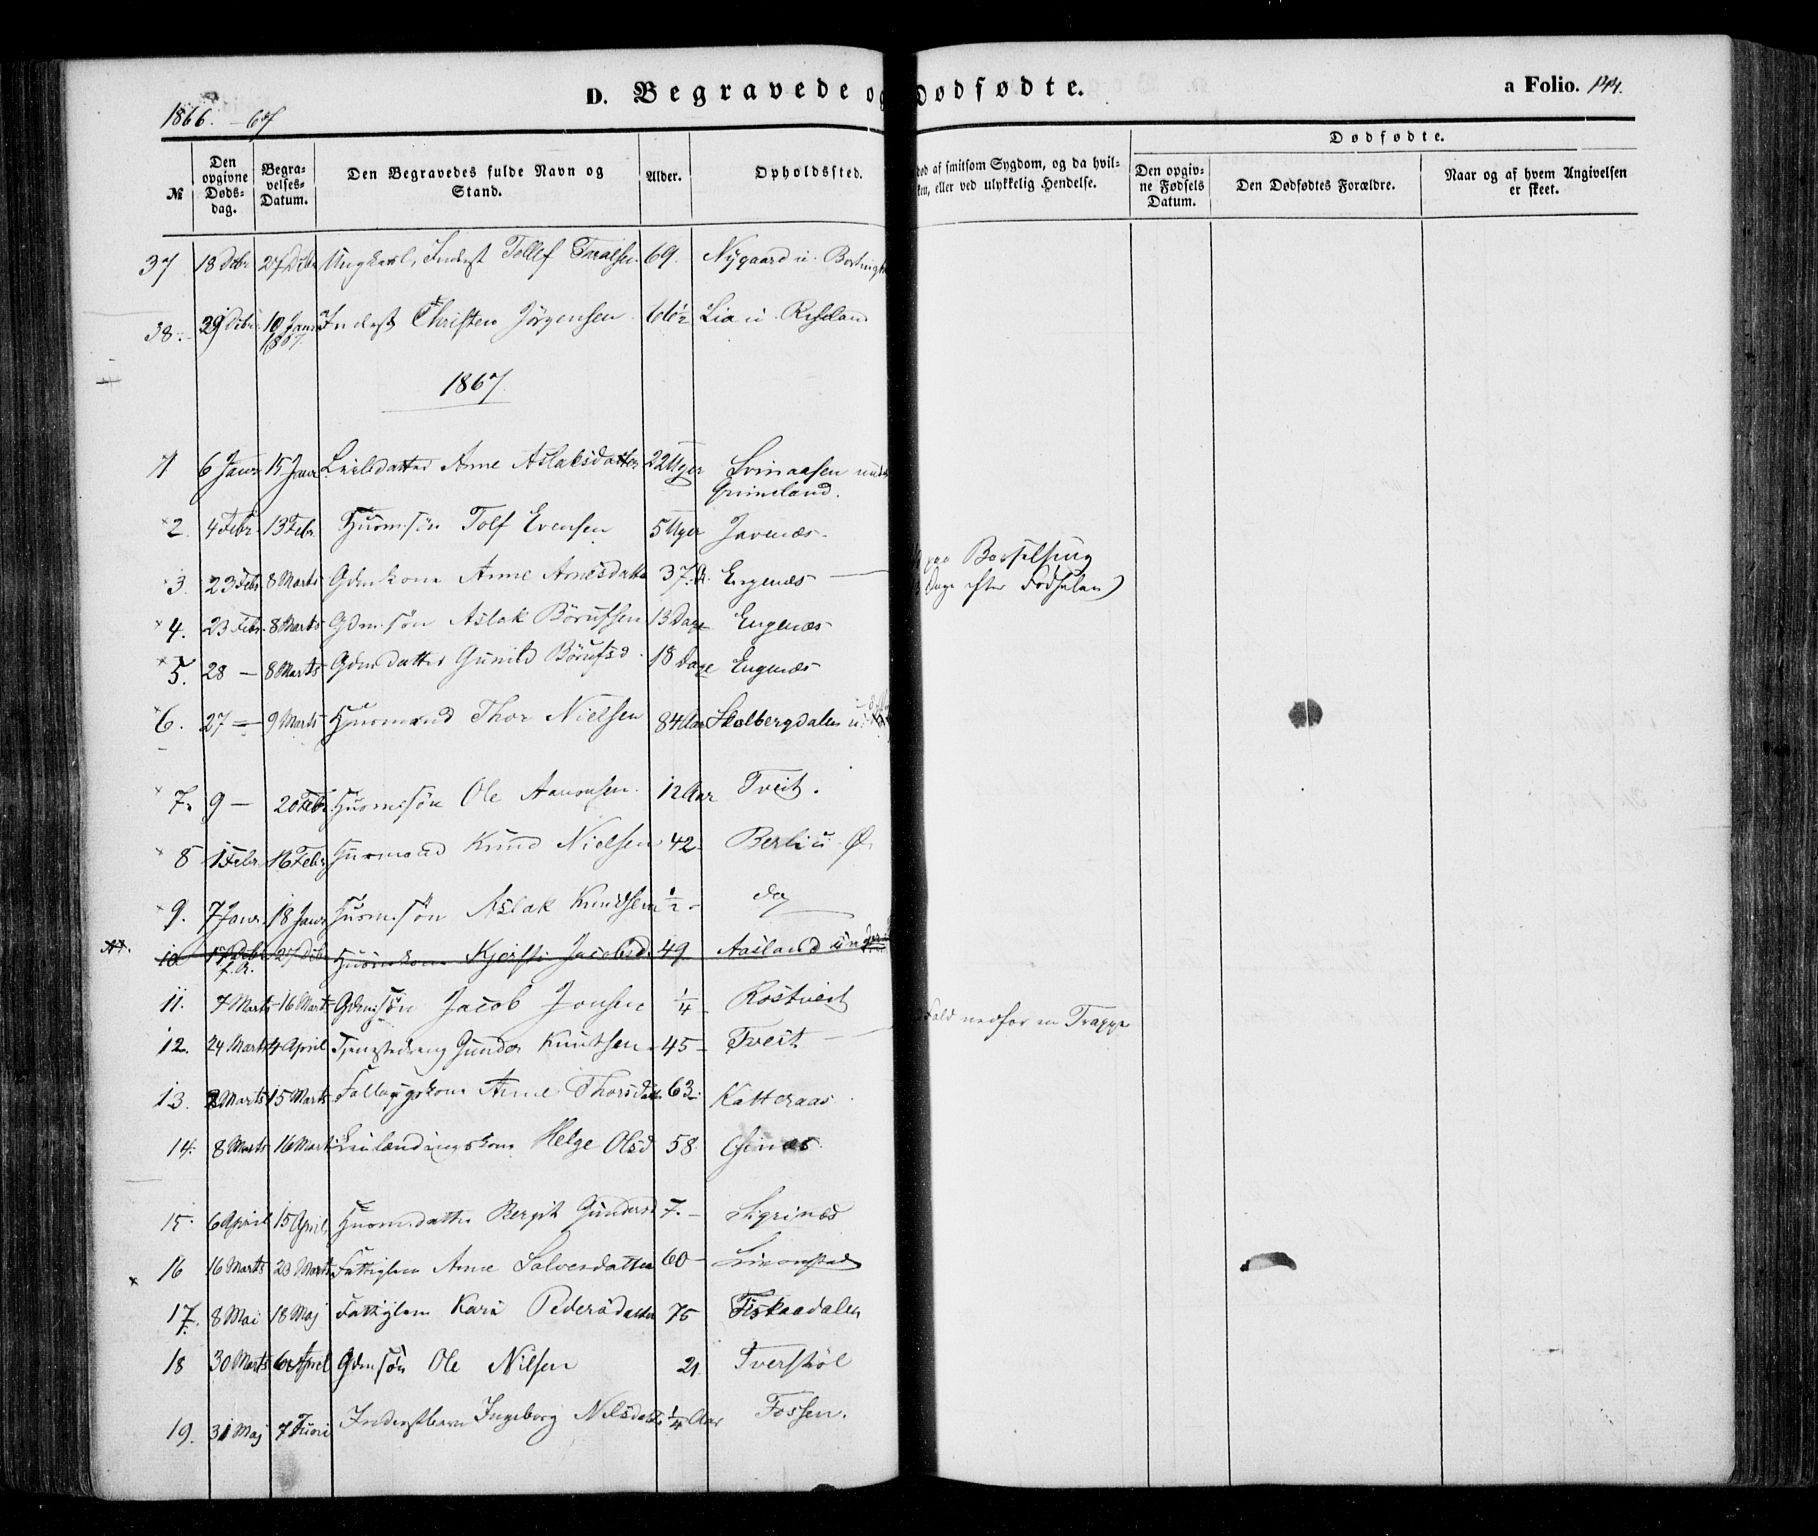 1866.-67
D. Begravede og Dødfødte.
a Folio. 144.
№
Den opgivne Døds-dag.
Begra-velses-Datum.
Den Begravedes fulde Navn og Stand.
Alder.
Opholdssted.
død af smitsom Sygdom, og da hvil-
ken, eller ved ulykkelig Hendelse.
Dødfødte.
Den opgiv-ne Fødsels Datum.
Den Dødfødtes Forældre.
Naar og af hvem Angivelsen er skeet.
37 18 Debr 27 Debr Ungkarl, Inderst Tollef Taralsen 69. Nygaard u.
38. 29 Debr 10 Janr 1867 Inderst Christen Jörgensen 66½ Lia u. Risland
1867.
1 6 Janr 15 Janr Anne Aslaksdatter 22 Uger Svinaasen under
Grimeland.
2. 4 Febr. 13 Febr. Husm.søn Tolf Evensen 5 Uger Javenæs
3. 23 Febr. 8 Marts Gdm.kone Anne Arnesdatter 37 A. Engenæs — paa Barselseng
Dage efter Fødselen)
4. 23 Febr. 8 Marts Gdm.søn Aslak Börufsen 13 Dage Engenæs
5. 28 — 8 Marts Gdm.datter Gunild Börufsd. 18 Dage Engenæs
6. 27 — 9 Marts Husmand Thor Nielsen 84 Aar Skolbergdalen u.
7. 9 — 20 Febr Husm.søn Ole Aanonsen. 12 Aar Tveit.
8 1 Febr. 16 Febr Husmand Knud Nielsen 42 Berli u Ø.
9. 7 Janr. 18 Janr Husm.søn Aslak Knudsen ½ do
10 17 Debr f.A. 27 Debr Husm.kone Kjersti Jacobsd. 49 Aasland under
11. 7 Marts 16 Marts Gdm.søn Jacob Jonsen ¼ Rostveit
12. 24 Marts 4 April Tjenestedreng Gunder Knutsen 45 Tveit — Fald nedfor en Trappe
13. 2 Marts 15 Marts Anne Thorsdatter 63 Katteraas
14. 8 Marts 16 Marts Helge Olsd 58
15. 6 April 15 April Husm.datter Bergit Gundersd 7. Sigrinæs
16 16 Marts 23 Marts Fattiglem Anne Salvesdatter 60 —
17. 8 Mai 18 Maj Fattiglem Kari Pedersdatter 75 Fiskaadalen
18 30 Marts 6 April Gdm.søn Ole Nilsen 21. Tverstöl
19. 31 Maj 7 Juni Inderstbarn Ingeborg Nilsdatter ¼ Aar Fossen.